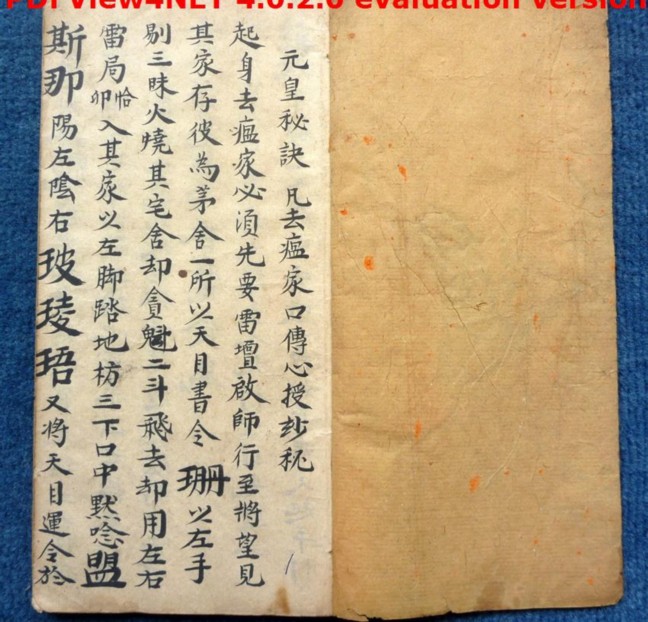 PDFView4NET 4.0.2.0 evaluation version
元皇秘訣 凡去瘟家口傳心授玅秘
起身去瘟家必須先要雷壇啟師行至將望見
其家存彼為茅舍一所以天目書令 珊 以左手
剔三昧火燒其宅舍却 魁二斗飛去却用左右
雷局恰卯入其家以左脚踏地枋三下口中黙唸盟
斯那陽左陰右玻琾珸又將天目運令於